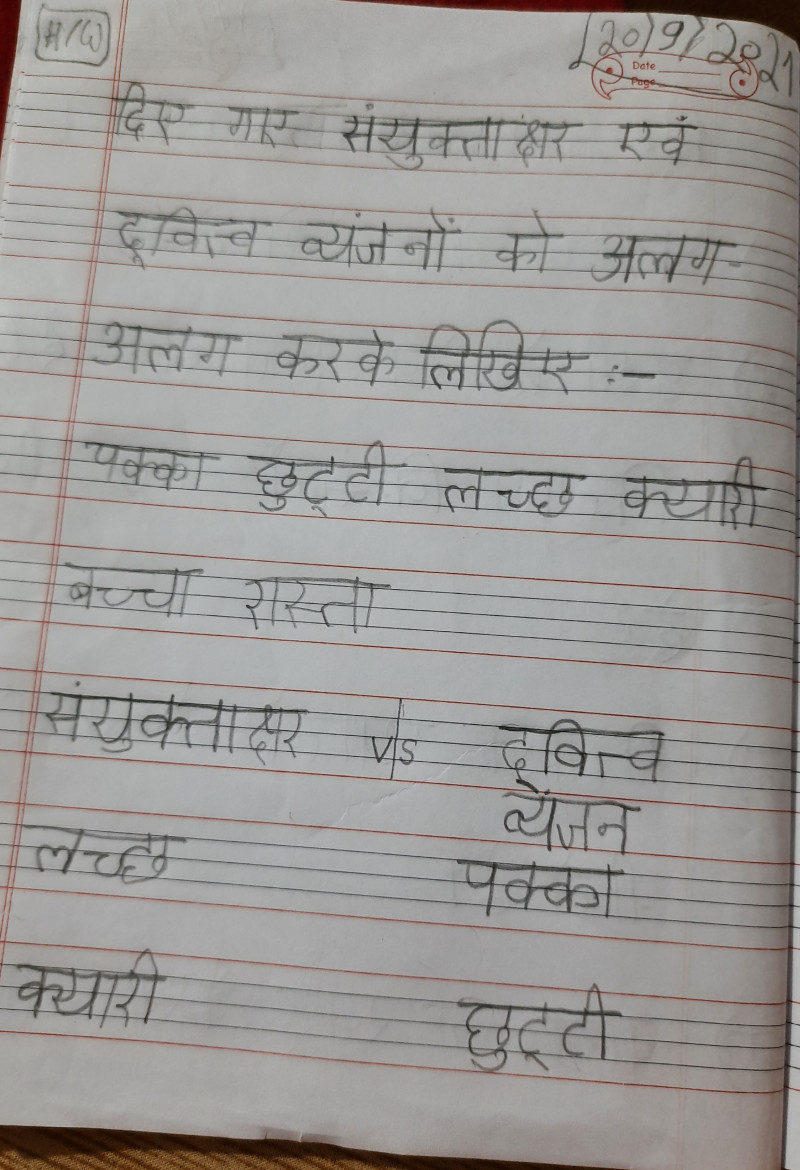 H/W
20/9/2021
Date
Page
दिए गए संयुक्ताक्षर एवं
द्वित्व व्यंजनों को अलग-
अलग करके लिखिए :-
पक्का छुट्टी लच्छा क्यारी
बच्चा रास्ता
संयुक्ताक्षर v/s द्वित्व
व्यंजन
लच्छा पक्का
क्यारी छुट्टी